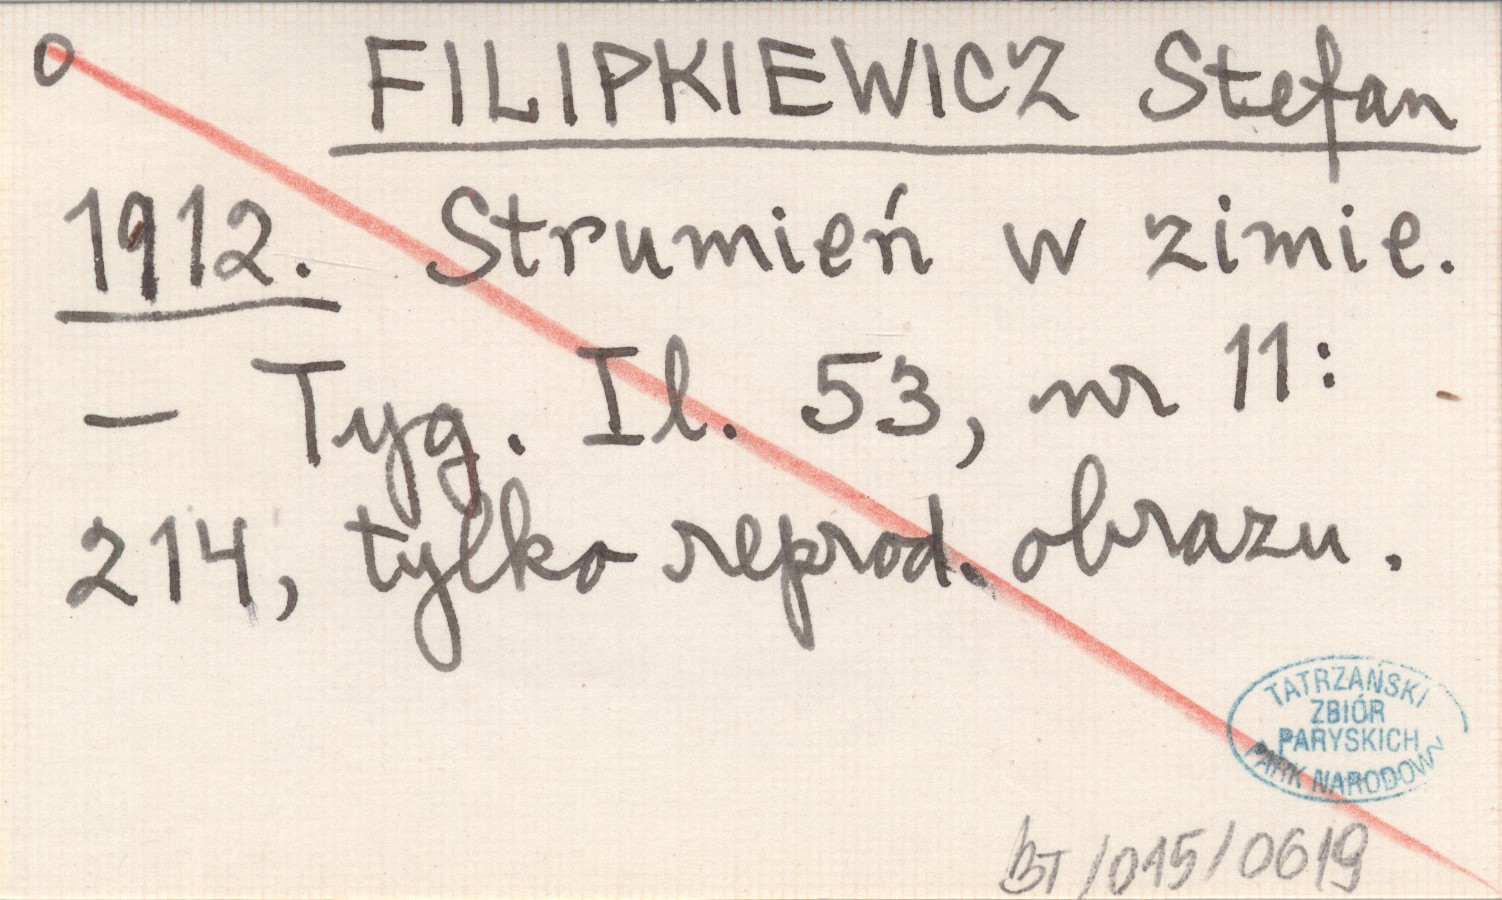 O FILIPKIEWICZ Stefan
1912. Strumień w zimie.
— Tyg. Il. 53, nr 11:
214, tylko reprod. obrazu.
TATRZAŃSKI
ZBIÓR
PARYSKICH
PARK NARODOWY
BT/015/0619